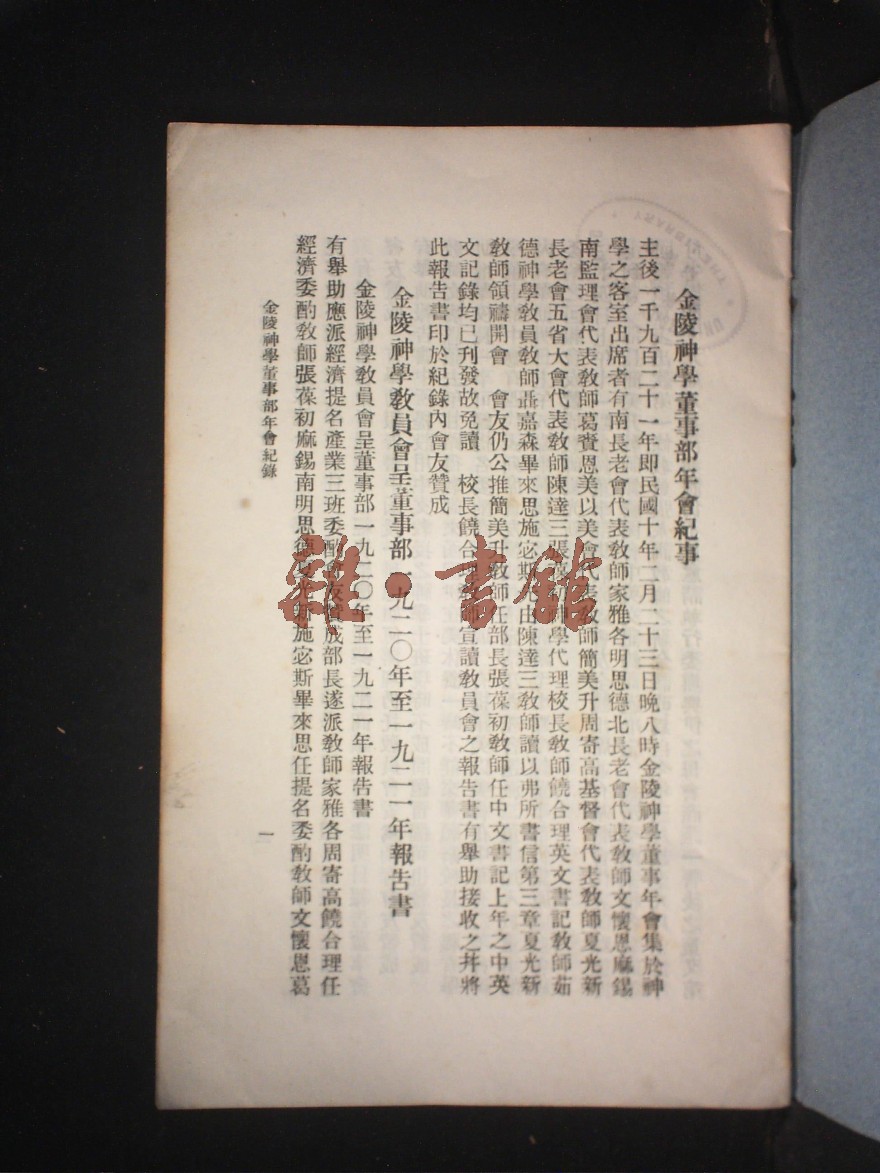 金陵神學董事部年會紀事
主後一千九百二十一年即民國十年二月二十三日晚八時金陵神學董事年會集於神
學之客室出席者有南長老會代表敎師家雅各明思德北長老會代表敎師文懷恩麻錫
南監理會代表敎師葛賚恩美以美會代表敎師簡美升周寄高基督會代表敎師夏光新
長老會五省大會代表敎師陳達三張葆初神學代理校長敎師饒合理英文書記敎師茹
德神學敎員敎師聶嘉森畢來思施宓斯 由陳達三敎師讀以弗所書信第三章夏光新
敎師領禱開會 會友仍公推簡美升敎師任部長張葆初敎師任中文書記上年之中英
文記錄均已刋發故免讀 校長饒合理敎師宣讀敎員會之報告書有舉助接收之并將
此報告書印於紀錄內會友贊成
金陵神學敎員會呈董事部一九二〇年至一九二一年報告書
金陵神學敎員會呈董事部一九二〇年至一九二一年報告書
有舉助應派經濟提名產業三班委酌會友贊成部長遂派敎師家雅各周寄高饒合理任
經濟委酌敎師張葆初麻錫南明思德夏光新施宓斯畢來思任提名委酌敎師文懷恩葛
金陵神學董事部年會紀錄
一
雜·書館